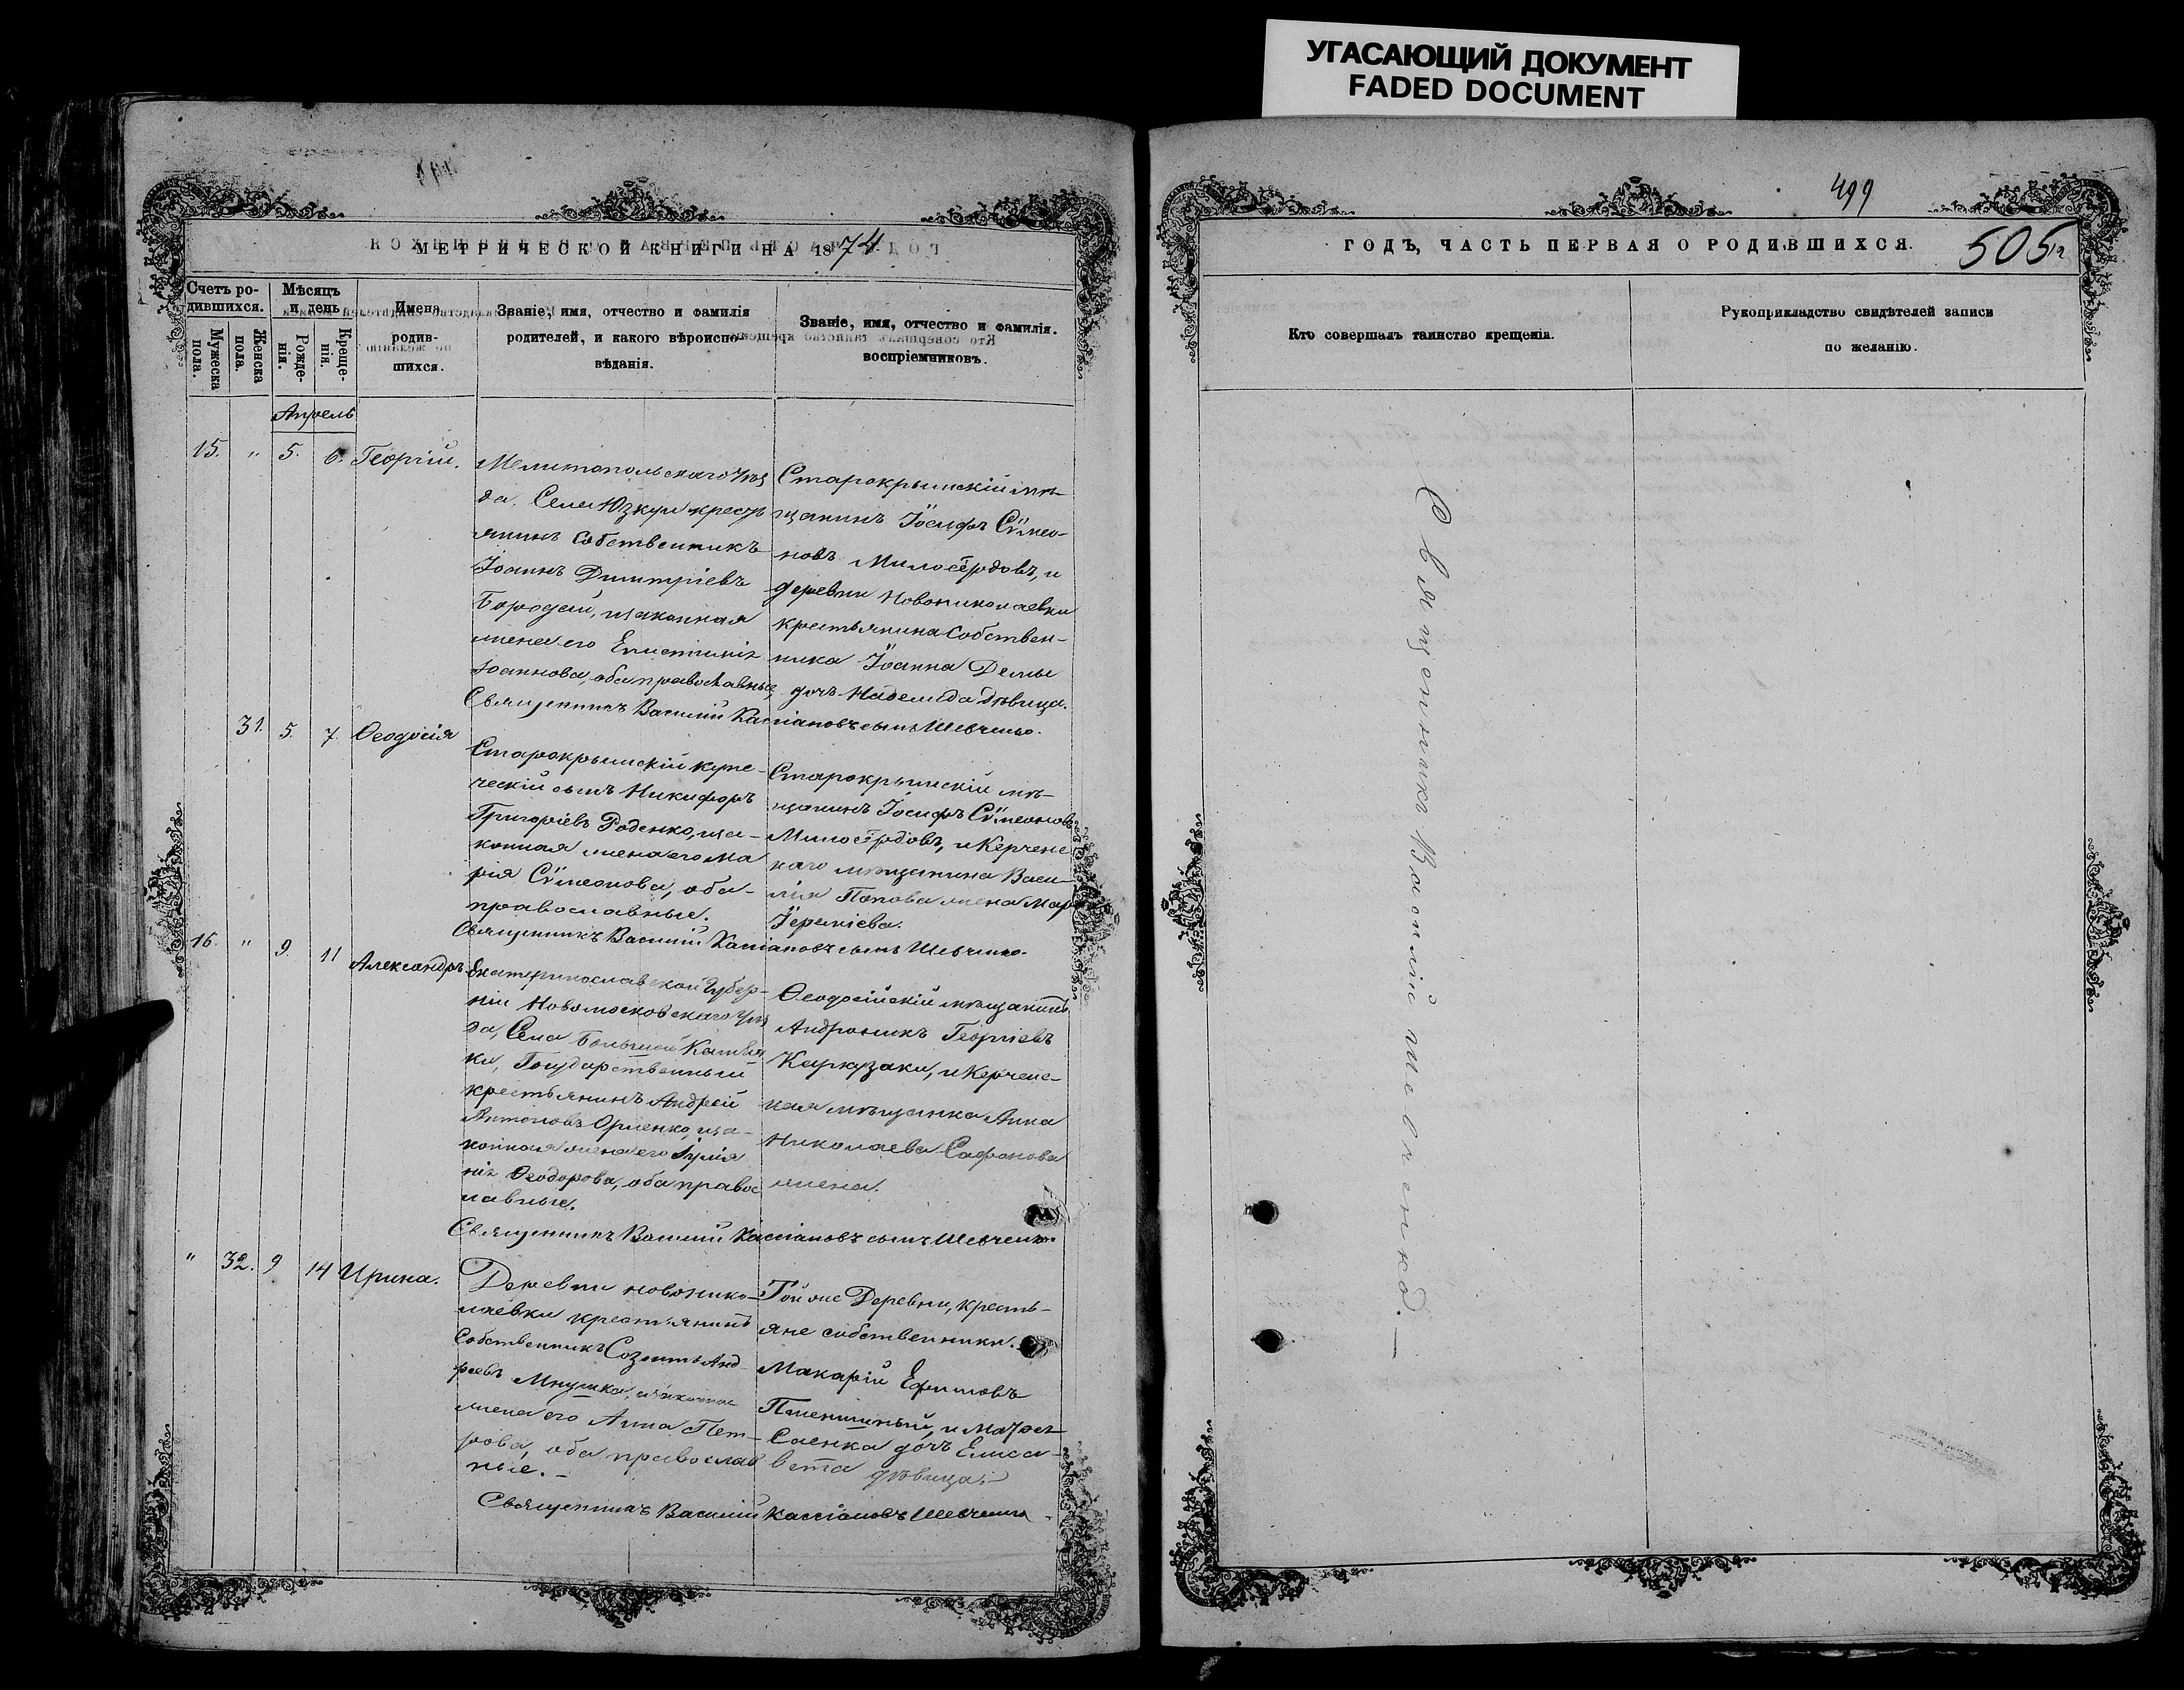 УГАСАЮЩИЙ ДОКУМЕНТ
FADED DOCUMENT
МЕТРИЧЕСКОЙ КНИГИ НА 1874
Счетъ ро-
дившихся.
Мужеска
пола.
Женска
пола.
Мѣсяцъ
и день
Рожде-
нія.
Креще-
нія.
Имена
родив-
шихся.
Званіе, имя, отчество и фамилія
родителей, и какого вѣроиспо-
вѣданія.
Званіе, имя, отчество и фамилія.
воспріемниковъ.
Апрель
15. " 5. 6. Георгій.
Мелитопольскаго Уѣз
да. Села Юзкуи кресть
янинъ Собственникъ
Іоаннъ Димитріевъ
Бородай, изаконная
жена его
Іоаннова, оба православные
Старокрымскій мѣ-
щанинъ Іосифъ Сѵмео-
новъ Милосердовъ, и
деревни Новониколаевки
крестьянина Собствен-
ника Іоанна
дочь Надежда дѣвица.
Священникъ Василій Кассіановъ сынъ Шевченко.
31. 5. 7. Ѳеодосія
Старокрымскій купе-
ческій сынъ Никифоръ
Григоріевъ Роденко, иза-
конная жена его Ма
рія Сѵмеонова, оба-
православные.
Старокрымскій мѣ-
щанинъ Іосифъ Сѵмеоновъ
Милосердовъ, и Керченс
каго мѣщанина Васи-
лія Попова жена Марія
Іереміева.
Священникъ Василій Кассіановъ сынъ Шевченко.
16. " 9. 11 Александръ
Екатеринославской Губер-
ніи Новомосковскаго Уѣз
да, Села Большой
ки, Государственный
крестьянинъ Андрей
Антоновъ Орленко, иза-
конная жена его Іулія
нія Ѳеодорова, оба правос
лавные.
Ѳеодосійскій мѣщанинъ
Андроникъ Георгіевъ
и Керченс-
кая мѣщанка Анна
Николаева Сафонова
жена.
Священникъ Василій Кассіановъ сынъ Шевченко.
" 32. 9 14 Ирина.
Деревни новонико-
лаевки крестьянинъ
Собственникъ Созонтъ Анд-
реевъ изаконная
жена его Анна Пет-
рова, оба православ
ные. -
Той же Деревни, кресть-
яне собственники.
Макарій Ефимовъ
Пшеничный, и
Саенка дочь Елиса-
вета дѣвица.
Священникъ Василій Кассіановъ Шевченко
499
ГОДЪ, ЧАСТЬ ПЕРВАЯ О РОДИВШИХСЯ.
505
Кто совершалъ таинство крещенія.
Рукоприкладство свидѣтелей записи
по желанію.
Священникъ Василій Шевченко. —